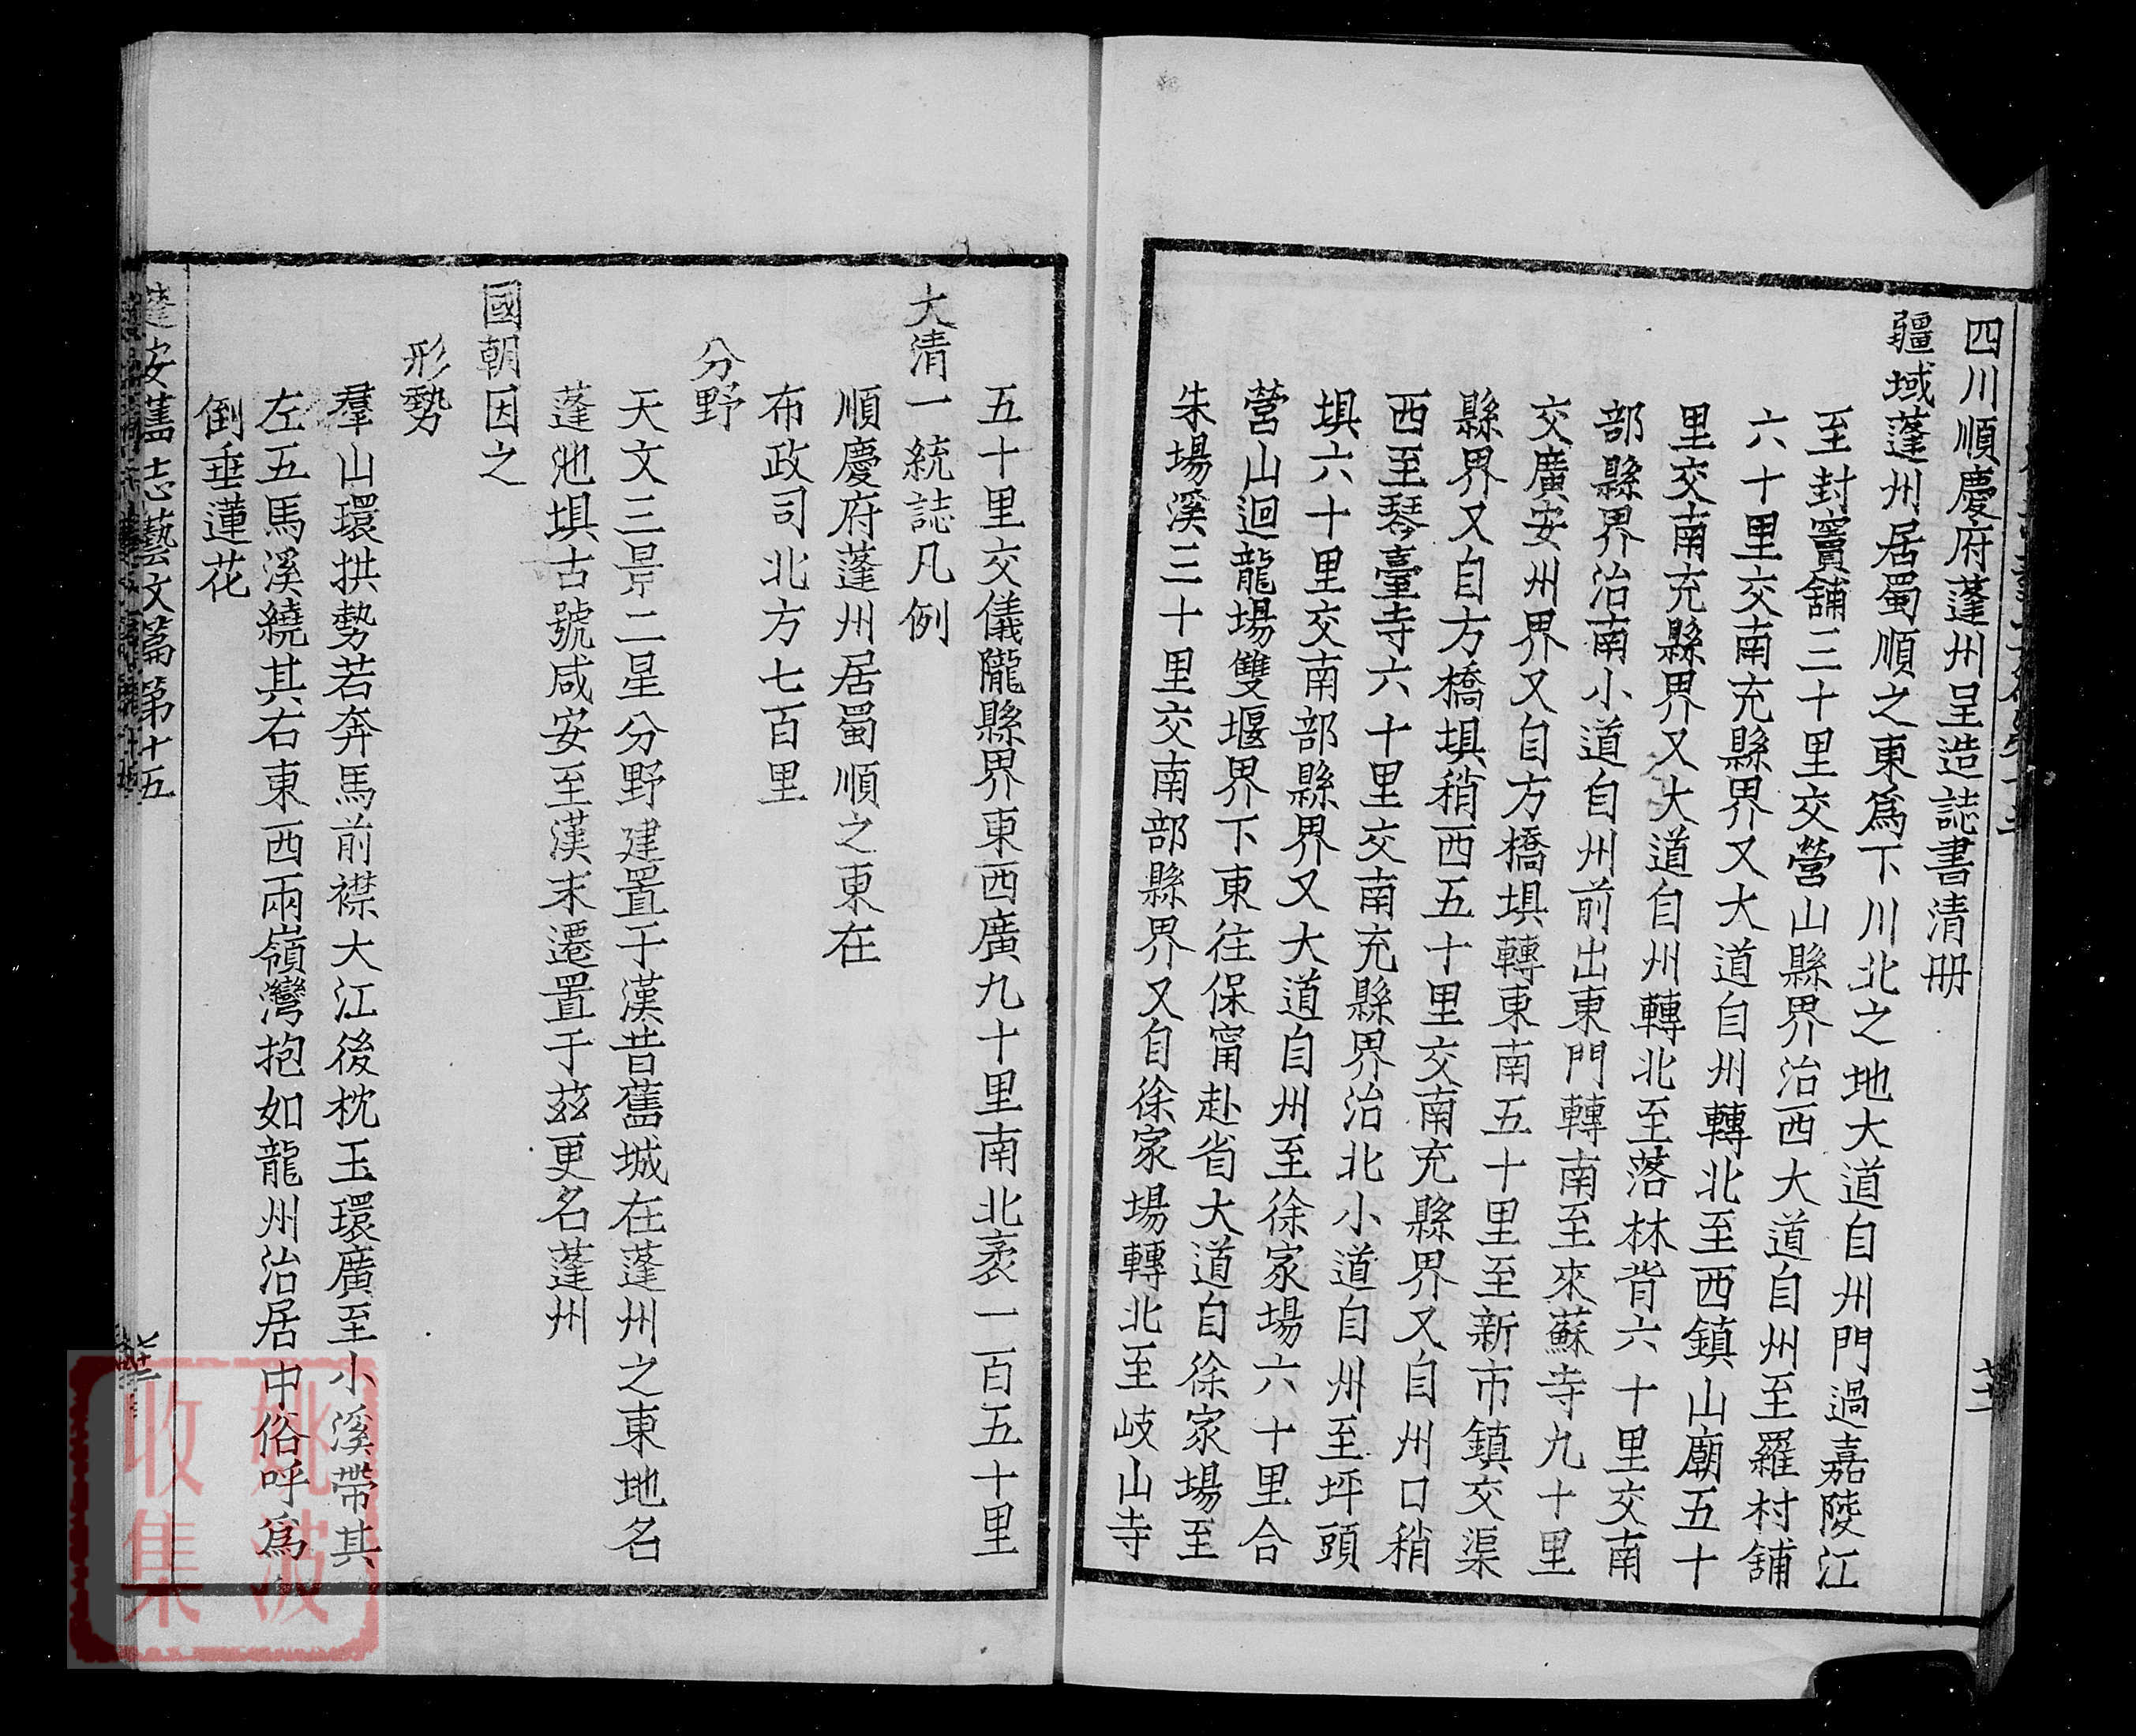 四川順慶府蓬州呈造誌書清册
疆域蓬州居蜀順之東爲下川北之地大道自州門過嘉陵江
至封竇舖三十里交營山縣界治西大道自州至羅村舖
六十里交南充縣界又大道自州轉北至西鎮山廟五十
里交南充縣界又大道自州轉北至落林背六十里交南
部縣界治南小道自州前出東門轉南至來蘇寺九十里
交廣安州界又自方橋埧轉東南五十里至新市鎮交渠
縣界又自方橋埧稍西五十里交南充縣界又自州口稍
西至琴臺寺六十里交南充縣界治北小道自州至坪頭
埧六十里交南部縣界又大道自州至徐家場六十里合
營山迴龍場雙堰界下東往保甯赴省大道自徐家場至
朱場溪三十里交南部縣界又自徐家場轉北至岐山寺
五十里交儀隴縣界東西廣九十里南北袤一百五十里
大清一統誌凡例
順慶府蓬州居蜀順之東在
布政司北方七百里
分野
天文三景二星分野建置于漢昔舊城在蓬州之東地名
蓬池埧古號咸安至漢末遷置于茲更名蓬州
國朝因之
形勢
羣山環拱勢若奔馬前襟大江後枕玉環廣至小溪帶其
左五馬溪繞其右東西兩嶺灣抱如龍州治居中俗呼爲
倒垂蓮花
蓬安舊志藝文篇第十五
姚波
收集